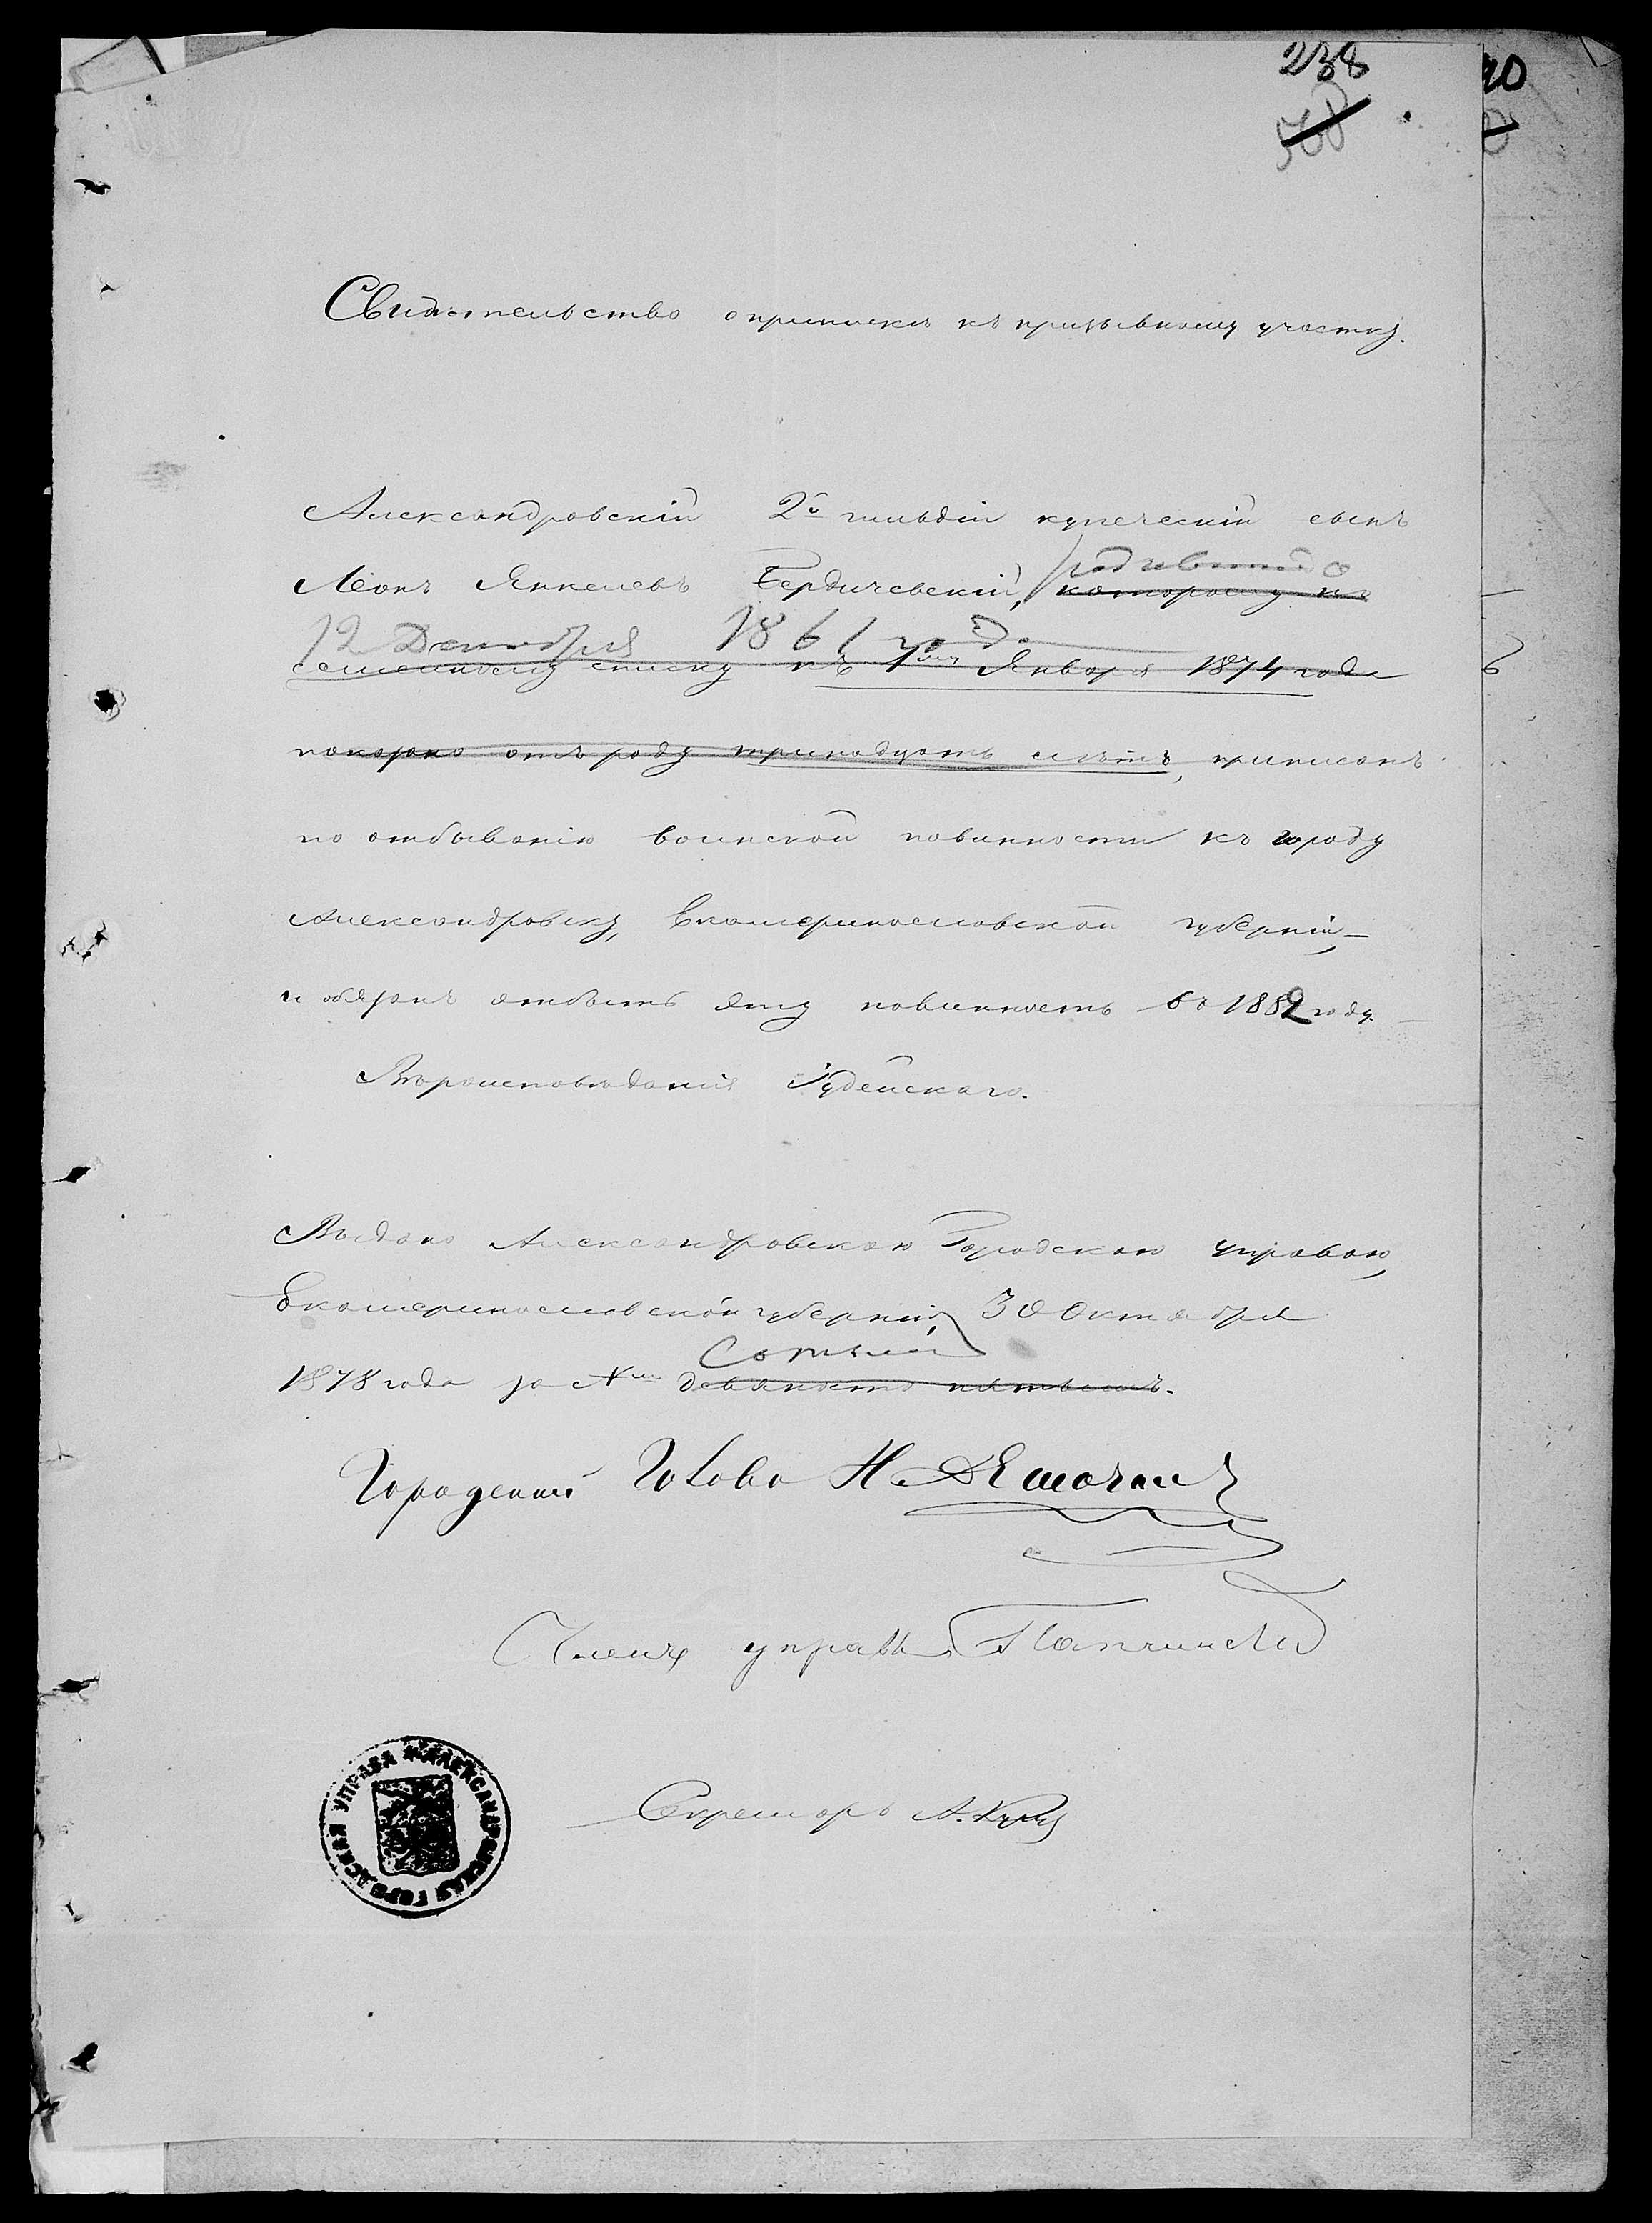 238
Свидѣтельство о припискѣ къ призывному участку.
Александровскій 2й гильдіи купеческій сынъ
родившійся
Леонъ Янкелевъ Бердичевскій, которому по
12 Декабря 1861 года
семейному списку къ 1му Января 1874 года
показано отъ роду тринадцать лѣтъ, приписанъ
по отбыванію воинской повинности къ городу
Александровску, Екатеринославской губерніи,
и обязанъ отбыть эту повинность въ 1882 году.
Вѣроисповѣданія Іудейскаго.
Выдано Александровскою Городскою управою,
Екатеринославской губерніи, 30 Октября
Сотымъ
1878 года за №мъ девяносто пятымъ.
Городской Голова Н.
Членъ управы
Секретарь А.
АЛЕКСАНДРОВСКАЯ ГОРОДСКАЯ УПРАВА